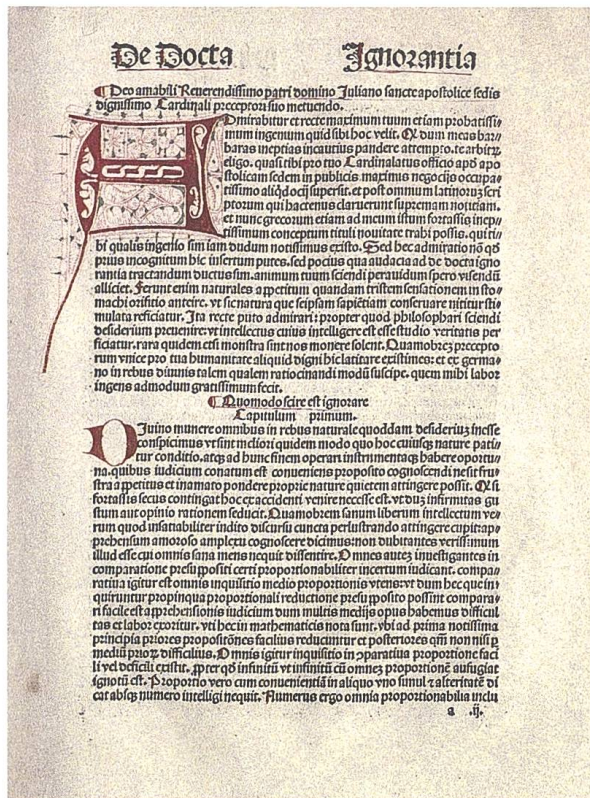 De Docta Ignorantia
Deo amabili Reuerendissimo patri domino Iuliano sancte apostolice sedis
dignissimo Cardinali preceptori suo metuendo.
Admirabitur et recte maximum tuum et iam probatissi-
mum ingenum quid sibi hoc velit. Qd dum meas bar-
baras ineptias incautius pandere attempto. te arbitrꝫ
eligo. quasi tibi pro tuo Cardinalatus officio apd apo
stolicam sedem in publicis maximus negocijs occupa-
tissimo aliqd ocij supersit. et post omnum latinorꝫ scri
ptorum qui hactenus claruerunt supremam noticiam.
et nunc grecorum etiam ad meum istum fortassis inep-
tissimum conceptum tituli nouitate trahi possis. qui ti-
bi qualis ingenio sim iam dudum notissimus existo. Sed hec admiratio nō qd
prius incognitum hic insertum putes. sed pocius qua audacia ad de docta igno
rantia tractandum ductus sim. animum tuum sciendi peruaidum spero visendū
alliciet. Ferunt enim naturales appetitum quandam tristem sensationem in sto-
machi orifitio anteire. vt sic natura que seipsam sapiētiam conseruare nititur sti-
mulata reficiatur. Ita recte puto admirari: propter quod philosophari sciendi
desiderium preuenire: vt intellectus cuius intelligere est esse studio veritatis per
ficiatur. rara quidem etsi monstra sint nos monere solent. Quamobrez precepto
rum vnice pro tua humanitate aliquid digni hic latitare existimes: et ex germa-
no in rebus diuinis talem qualem ratiocinandi modū suscipe. quem mihi labor
ingens admodum gratissimum fecit.
Quomodo scire est ignorare
Capitulum primum.
Diuino munere omnibus in rebus naturale quoddam desideriuꝫ inesse
conspicimus vt sint meliori quidem modo quo hoc cuiusqꝫ nature pati-
tur conditio. atqꝫ ad hunc finem operari instrumentaqꝫ habere oportu-
na. quibus iudicium conatum est conueniens proposito cognoscendi ne sit fru-
stra appetitus et in amato pondere proprie nature quietem attingere possit. Qd si
fortassis secus contingat hoc ex accidenti venire necesse est. vt duꝫ infirmitas gu
stum aut opinio rationem seducit. Quamobrem sanum liberum intellectum ve-
rum quod insatiabiliter indito discursu cuncta perlustrando attingere cupit ap-
prehensum amoroso amplexu cognoscere dicimus: non dubitantes verissimum
illud esse cui omnis sana mens nequit dissentire. Omnes autez inuestigantes in
comparatione presuppositi certi proportionabiliter incertum iudicant. compa-
ratiua igitur est omnis inquisitio medio proportionis vtens: vt dum hec que in-
quiruntur propinqua proportionali reductione presupposito possint compara-
ri facile est apprehensionis iudicium dum multis medijs opus habemus difficul
tas et labor exoritur. vti hec in mathematicis nota sunt. vbi ad prima notissima
principia priores propositōnes facilius reducuntur et posteriores qm̄ non nisi ꝑ
mediū priorꝫ difficilius. Omnis igitur inquisitio in ꝯparatiua proportione faci
li vel deficili existit. ꝓpter qd infinitū vt infinitū cū omneꝫ proportionē aufugiat
ignotū est. Proportio vero cum conuenientiā in aliquo vno simul ⁊ alteritatē di
cat absqꝫ numero intelligi nequit. Numerus ergo omnia proportionabilia inclu
a .ij.